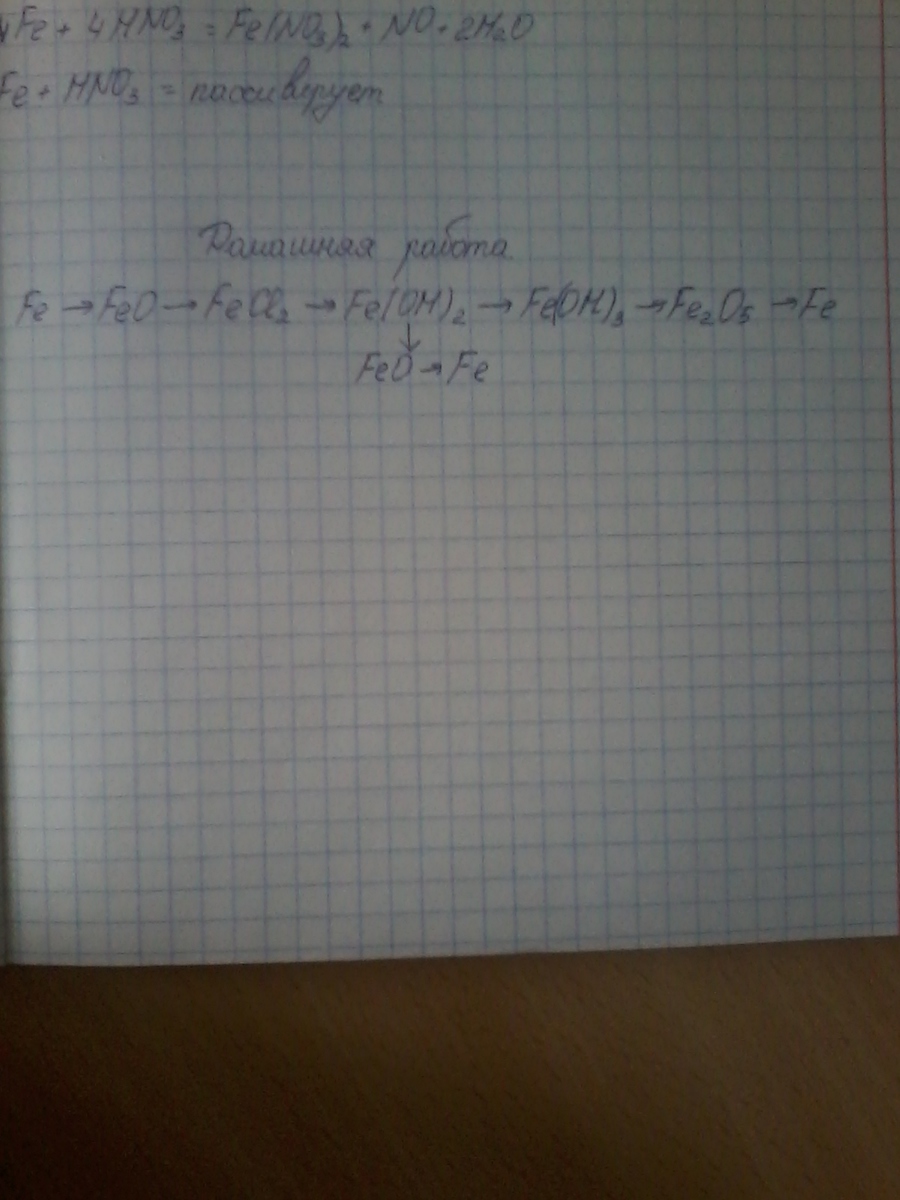 4Fe + 4HNO₃ = Fe(NO₃)₂ + NO + 2H₂O
Fe + HNO₃ = пассиверует
Домашняя работа
Fe → FeO → FeCl₂ → Fe(OH)₂ → Fe(OH)₃ → Fe₂O₅ → Fe
↓
FeO → Fe